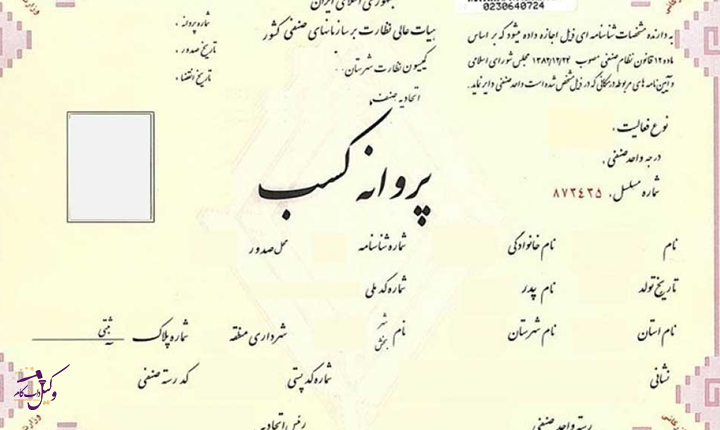 جمهوری اسلامی ایران
هیات عالی نظارت بر سازمانهای صنفی کشور
کمیسیون نظارت شهرستان:
اتحادیه صنف:
شماره پروانه:
تاریخ صدور:
تاریخ انقضاء:
0230640724
به دارنده مشخصات شناسنامه ای ذیل اجازه داده میشود که بر اساس
ماده ۱۲ قانون نظام صنفی مصوب ۱۳۸۲/۱۲/۲۴ مجلس شورای اسلامی
و آیین نامه های مربوطه در مکانی که در ذیل مشخص شده است واحد صنفی دایر نماید.
نوع فعالیت:
درجه واحد صنفی:
شماره مسلسل: ۸۷۳۴۲۵
پروانه کسب
نام نام خانوادگی شماره شناسنامه محل صدور
تاریخ تولد نام پدر شماره کد ملی
نام استان نام شهرستان نام شهر بخش شهرداری منطقه شماره پلاک ثبتی
نشانی شماره کد پستی کد رسته صنفی
رسته واحد صنفی رئیس اتحادیه
وکیل